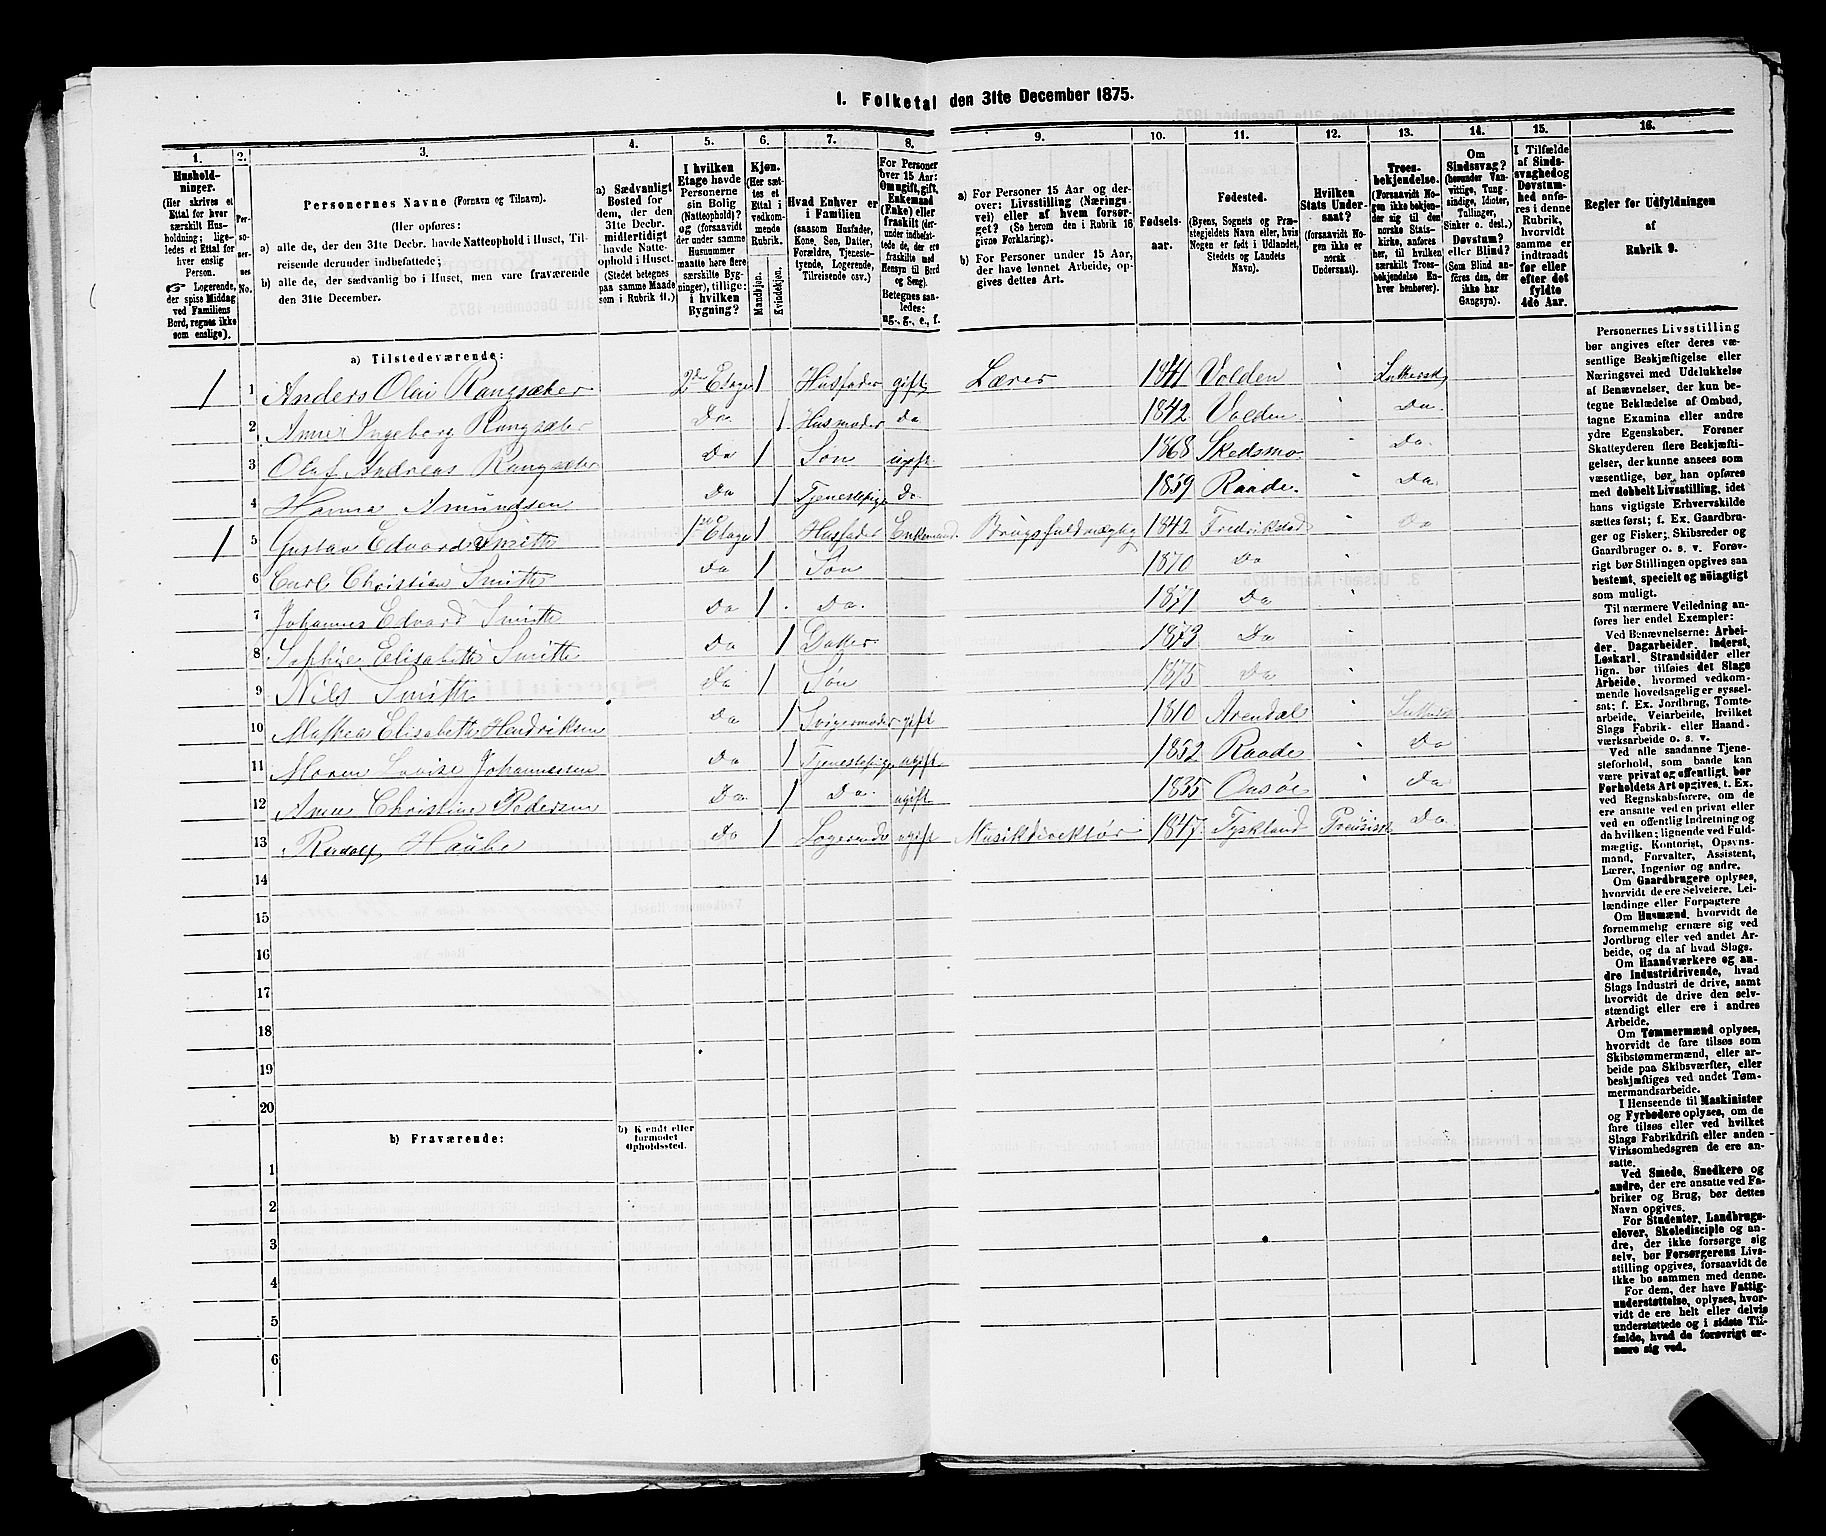 I. Folketal den 31te December 1875.
1. 2. 3. 4. 5. 6. 7. 8. 9. 10. 11. 12. 13. 14. 15. 16.
Hushold-
ninger.
(Her skrives et
Ettal for hver
særskilt Hus-
holdning; lige-
ledes et Ettal for
hver enslig
Person.
☞ Logerende,
der spise Middag
ved Familiens
Bord, regnes ikke
som enslige).
Per-
so-
ner-
nes
No.
Personernes Navne (Fornavn og Tilnavn).
(Her opføres:
a) alle de, der den 31te Decbr. havde Natteophold i Huset, Til-
reisende derunder indbefattede;
b) alle de, der sædvanlig bo i Huset, men vare fraværende
den 31te December.
a) Sædvanligt
Bosted for
dem, der den
31te Decbr.
midlertidigt
havde Natte-
ophold i Huset.
(Stedet betegnes
paa samme Maade
som i Rubrik 11.)
I hvilken
Etage havde
Personerne
sin Bolig
(Natteophold)?
og (forsaavidt
der under samme
Husnummer
maatte høre flere
særskilte Byg-
ninger), tillige:
i hvilken
Bygning?
Kjøn.
(Her sæt-
tes et
Ettal i
vedkom-
mende
Rubrik.
Mandkjøn.
Kvindekjøn.
Hvad Enhver er
i Familien
(saasom Husfader,
Kone, Søn, Datter,
Forældre, Tjeneste-
tyende, Logerende,
Tilreisende osv.)
For Personer
over 15 Aar:
Om ugift, gift,
Enkemand
(Enke) eller
fraskilt (der-
under indbefat-
tede de, der ere
fraskilte med
Hensyn til Bord
og Seng).
Betegnes saa-
ledes:
ug., g., e., f.
a) For Personer 15 Aar og der-
over: Livsstilling (Nærings-
vei) eller af hvem forsør-
get? (Se herom den i Rubrik 16
givne Forklaring).
b) For Personer under 15 Aar,
der have lønnet Arbeide, op-
gives dettes Art.
Fødsels-
aar.
Fødested.
(Byens, Sognets og Præ-
stegjeldets Navn eller, hvis
Nogen er født i Udlandet,
Stedets og Landets
Navn).
Hvilken
Stats Under-
saat?
(forsaavidt No-
gen ikke er
norsk
Undersaat).
Troes-
bekjendelse.
(Forsaavidt No-
gen ikke bekjen-
der sig til den
norske Stats-
kirke, anføres
her, til hvilken
særskilt Troes-
bekjendelse En-
hver henhører).
Om
Sindssvag?
(herunder Van-
vittige, Tung-
sindige, Idioter,
Tullinger,
Sinker o. desl.)
Døvstum?
eller Blind?
(Som Blind an-
føres den, der
ikke har
Gangsyn).
I Tilfælde
af Sinds-
svaghed og
Døvstum-
hed anfø-
res i denne
Rubrik,
hvorvidt
samme er
indtraadt
før eller
efter det
fyldte
4de Aar.
Regler for Udfyldningen
af
Rubrik 9.
a) Tilstedeværende:
1 1 Anders Olai Rangsæter 2den Etage 1 Husfader gift Lærer 1841 Volden " Luthersk
2 Anne Ingeborg Rangsæter Do 1 Husmoder Do 1842 Volden " Do
3 Olaf Andreas Rangsæter Do 1 Søn ugift 1868 Skedsmo " Do
4 Hanna Amundsen Do 1 Tjenestepige Do 1859 Raade " Do
1 5 Gustav Edvard Smith 1ste Etage 1 Husfader Enkemand Brugsfuldmægtig 1842 Fredrikstad " Do
6 Carl Christian Smith Do 1 Søn 1870 Do "
7 Johannes Edvard Smith Do 1 Do 1871 Do "
8 Sophie Elisabeth Smith Do 1 Datter 1873 Do "
9 Nils Smith Do 1 Søn 1875 Do "
10 Mathea Elisabeth Hendriksen Do 1 Svigermoder gift 1810 Arendal " Luthersk
11 Maren Lovise Johannessen Do 1 Tjenestepige ugift 1852 Raade " Do
12 Anne Christine Pedersen Do 1 Do ugift 1835 Onsøe " Do
13 Rudolf Haube Do 1 Logerende ugift Musikdirektør 1847 Tyskland Preusisk Do
14
15
16
17
18
19
20
b) Fraværende:
b) Kjendt eller
formodet
Opholdssted.
1
2
3
4
5
6
Personernes Livsstilling
bør angives efter deres væ-
sentlige Beskjæftigelse eller
Næringsvei med Udelukkelse
af Benævnelser, der kun be-
tegne Beklædelse af Ombud,
tagne Examina eller andre
ydre Egenskaber. Forener
Skatteyderen flere Beskjæfti-
gelser, der kunne ansees som
væsentlige, bør han opføres
med dobbelt Livsstilling, idet
hans vigtigste Erhvervskilde
sættes først; f. Ex. Gaardbru-
ger og Fisker; Skibsreder og
Gaardbruger o. s. v. Forøv-
rigt bør Stillingen opgives saa
bestemt, specielt og nöiagtigt
som muligt.
Til nærmere Veiledning an-
føres her endel Exempler:
Ved Benævnelserne: Arbei-
der, Dagarbeider, Inderst,
Løskarl, Strandsidder eller
lign. bør tilføies det Slags
Arbeide, hvormed vedkom-
mende hovedsagelig er syssel-
sat; f. Ex. Jordbrug, Tomte-
arbeide, Veiarbeide, hvilket
Slags Fabrik- eller Haand-
værksarbeide o. s. v.
Ved alle saadanne Tjene-
steforhold, som baade kan
være privat og offentligt, bør
Forholdets Art opgives, t. Ex.
ved Regnskabsførere, om de
ere ansatte ved en privat eller
ved en offentlig Indretning og
da hvilken; lignende ved Fuld-
mægtig, Kontorist, Opsyns-
mand, Forvalter, Assistent,
Lærer, Ingeniør og andre.
Om Gaardbrugere oplyses,
hvorvidt de ere Selveiere, Lei-
lændinge eller Forpagtere
Om Husmænd, hvorvidt de
fornemmelig ernære sig ved
Jordbrug eller ved andet Ar-
beide, og da af hvad Slags.
Om Haandværkere og an-
dre Industridrivende, hvad
Slags Industri de drive, samt
hvorvidt de drive den selv-
stændigt eller ere i andres
Arbeide.
Om Tømmermænd oplyses,
hvorvidt de fare tilsøs som
Skibstømmermænd, eller ar-
beide paa Skibsværfter, eller
beskjæftiges ved andet Tøm-
mermandsarbeide.
I Henseende til Maskinister
og Fyrbødere oplyses, om de
fare tilsøs eller ved hvilket
Slags Fabrikdrift eller anden
Virksomhedsgren de ere an-
satte.
Ved Smede, Snedkere og
andre, der ere ansatte ved Fa-
briker og Brug, bør dettes
Navn opgives.
For Studenter, Landbrugs-
elever, Skoledisciple og an-
dre, der ikke forsørge sig
selv, bør Forsørgerens Livs-
stilling opgives, forsaavidt de
ikke bo sammen med denne.
For dem, der have Fattig-
understøttelse, oplyses, hvor-
vidt de ere helt eller delvis
understøttede og i sidste Til-
fælde, hvad de forøvrigt er-
nære sig ved.